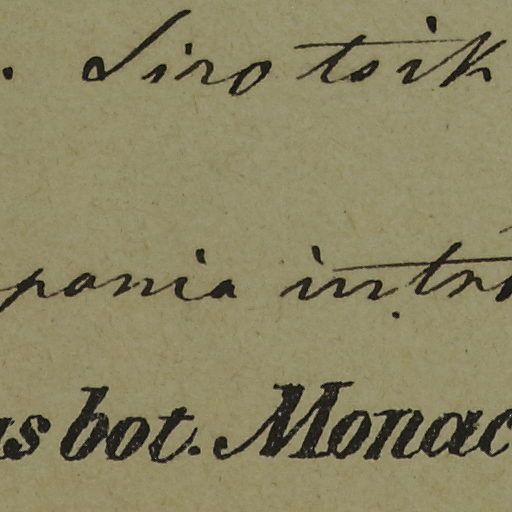 . Sirotsik
pania intro
us bot. Monac